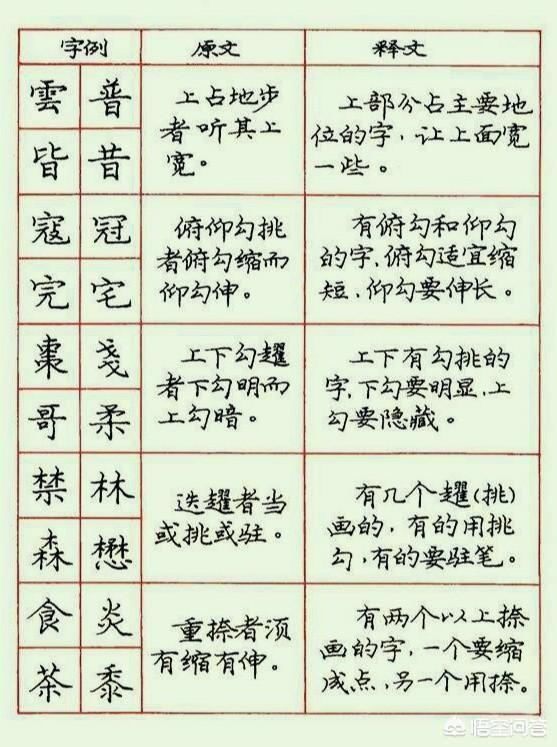 字例
原文
释文
雲 普
皆 昔
上占地步
者听其上
宽。
上部分占主要地
位的字，让上面宽
一些。
寇 冠
完 宅
俯仰勾挑
者俯勾缩而
仰勾伸。
有俯勾和仰勾
的字，俯勾适宜缩
短，仰勾要伸长。
棗 戔
哥 柔
上下勾趯
者下勾明而
上勾暗。
上下有勾挑的
字，下勾要明显，上
勾要隐藏。
禁 林
森 懋
迭趯者当
或挑或驻。
有几个趯(挑)
画的，有的用挑
勾，有的要驻笔。
食 炎
茶 黍
重捺者须
有缩有伸。
有两个以上捺
画的字，一个要缩
成点，另一个用捺。
悟空问答